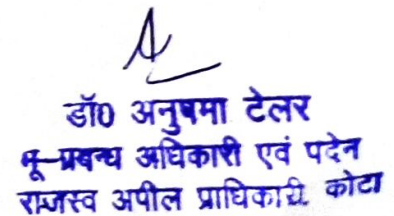 डॉ0 अनुषमा टेलर
भू-प्रबन्ध अधिकारी एवं पदेन
राजस्व अपील प्राधिकारी कोटा